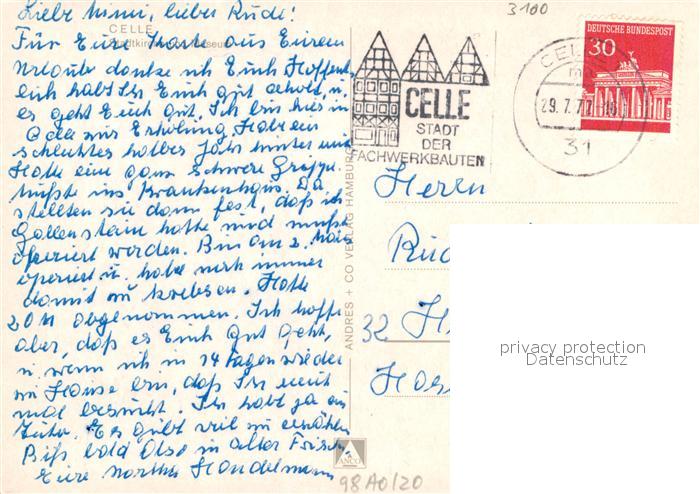 Liebe Mimi, lieber Rudi!
CELLE
Stadtkirche und Museum
Für Eure Karte aus Eurem
Urlaub danke ich Euch. Hoffent
lich habt Ihr Euch gut erholt, u.
es geht Euch gut. Ich bin hier in
Celle zur Erholung. Habe ein
schlechtes halbes Jahr hinter mir
Hatte eine ganz schwere Grippe
mußte ins Krankenhaus. Da
stellten sie dann fest, daß ich
Gallenstein hatte und mußte
operiert werden. Bin am 2. März
operiert u. habe noch immer
damit zu krebsen. Hatte
20 abgenommen. Ich hoffe
aber, daß es Euch gut geht,
u. wenn ich in 14 Tagen wieder
zu Hause bin, daß Ihr mich
mal besucht. Ihr habt ja ein
Auto. Es gibt viel zu erzählen
Biß bald Also in alter Frische
Eure Martha Handelmann
ANDRES + CO VERLAG HAMBURG
ANCO
98 A0/20
3100
CELLE
STADT
DER
FACHWERKBAUTEN
DEUTSCHE BUNDESPOST
30
CELLE
29.7.77
31
Herrn
Rud
32 H
privacy protection
Datenschutz